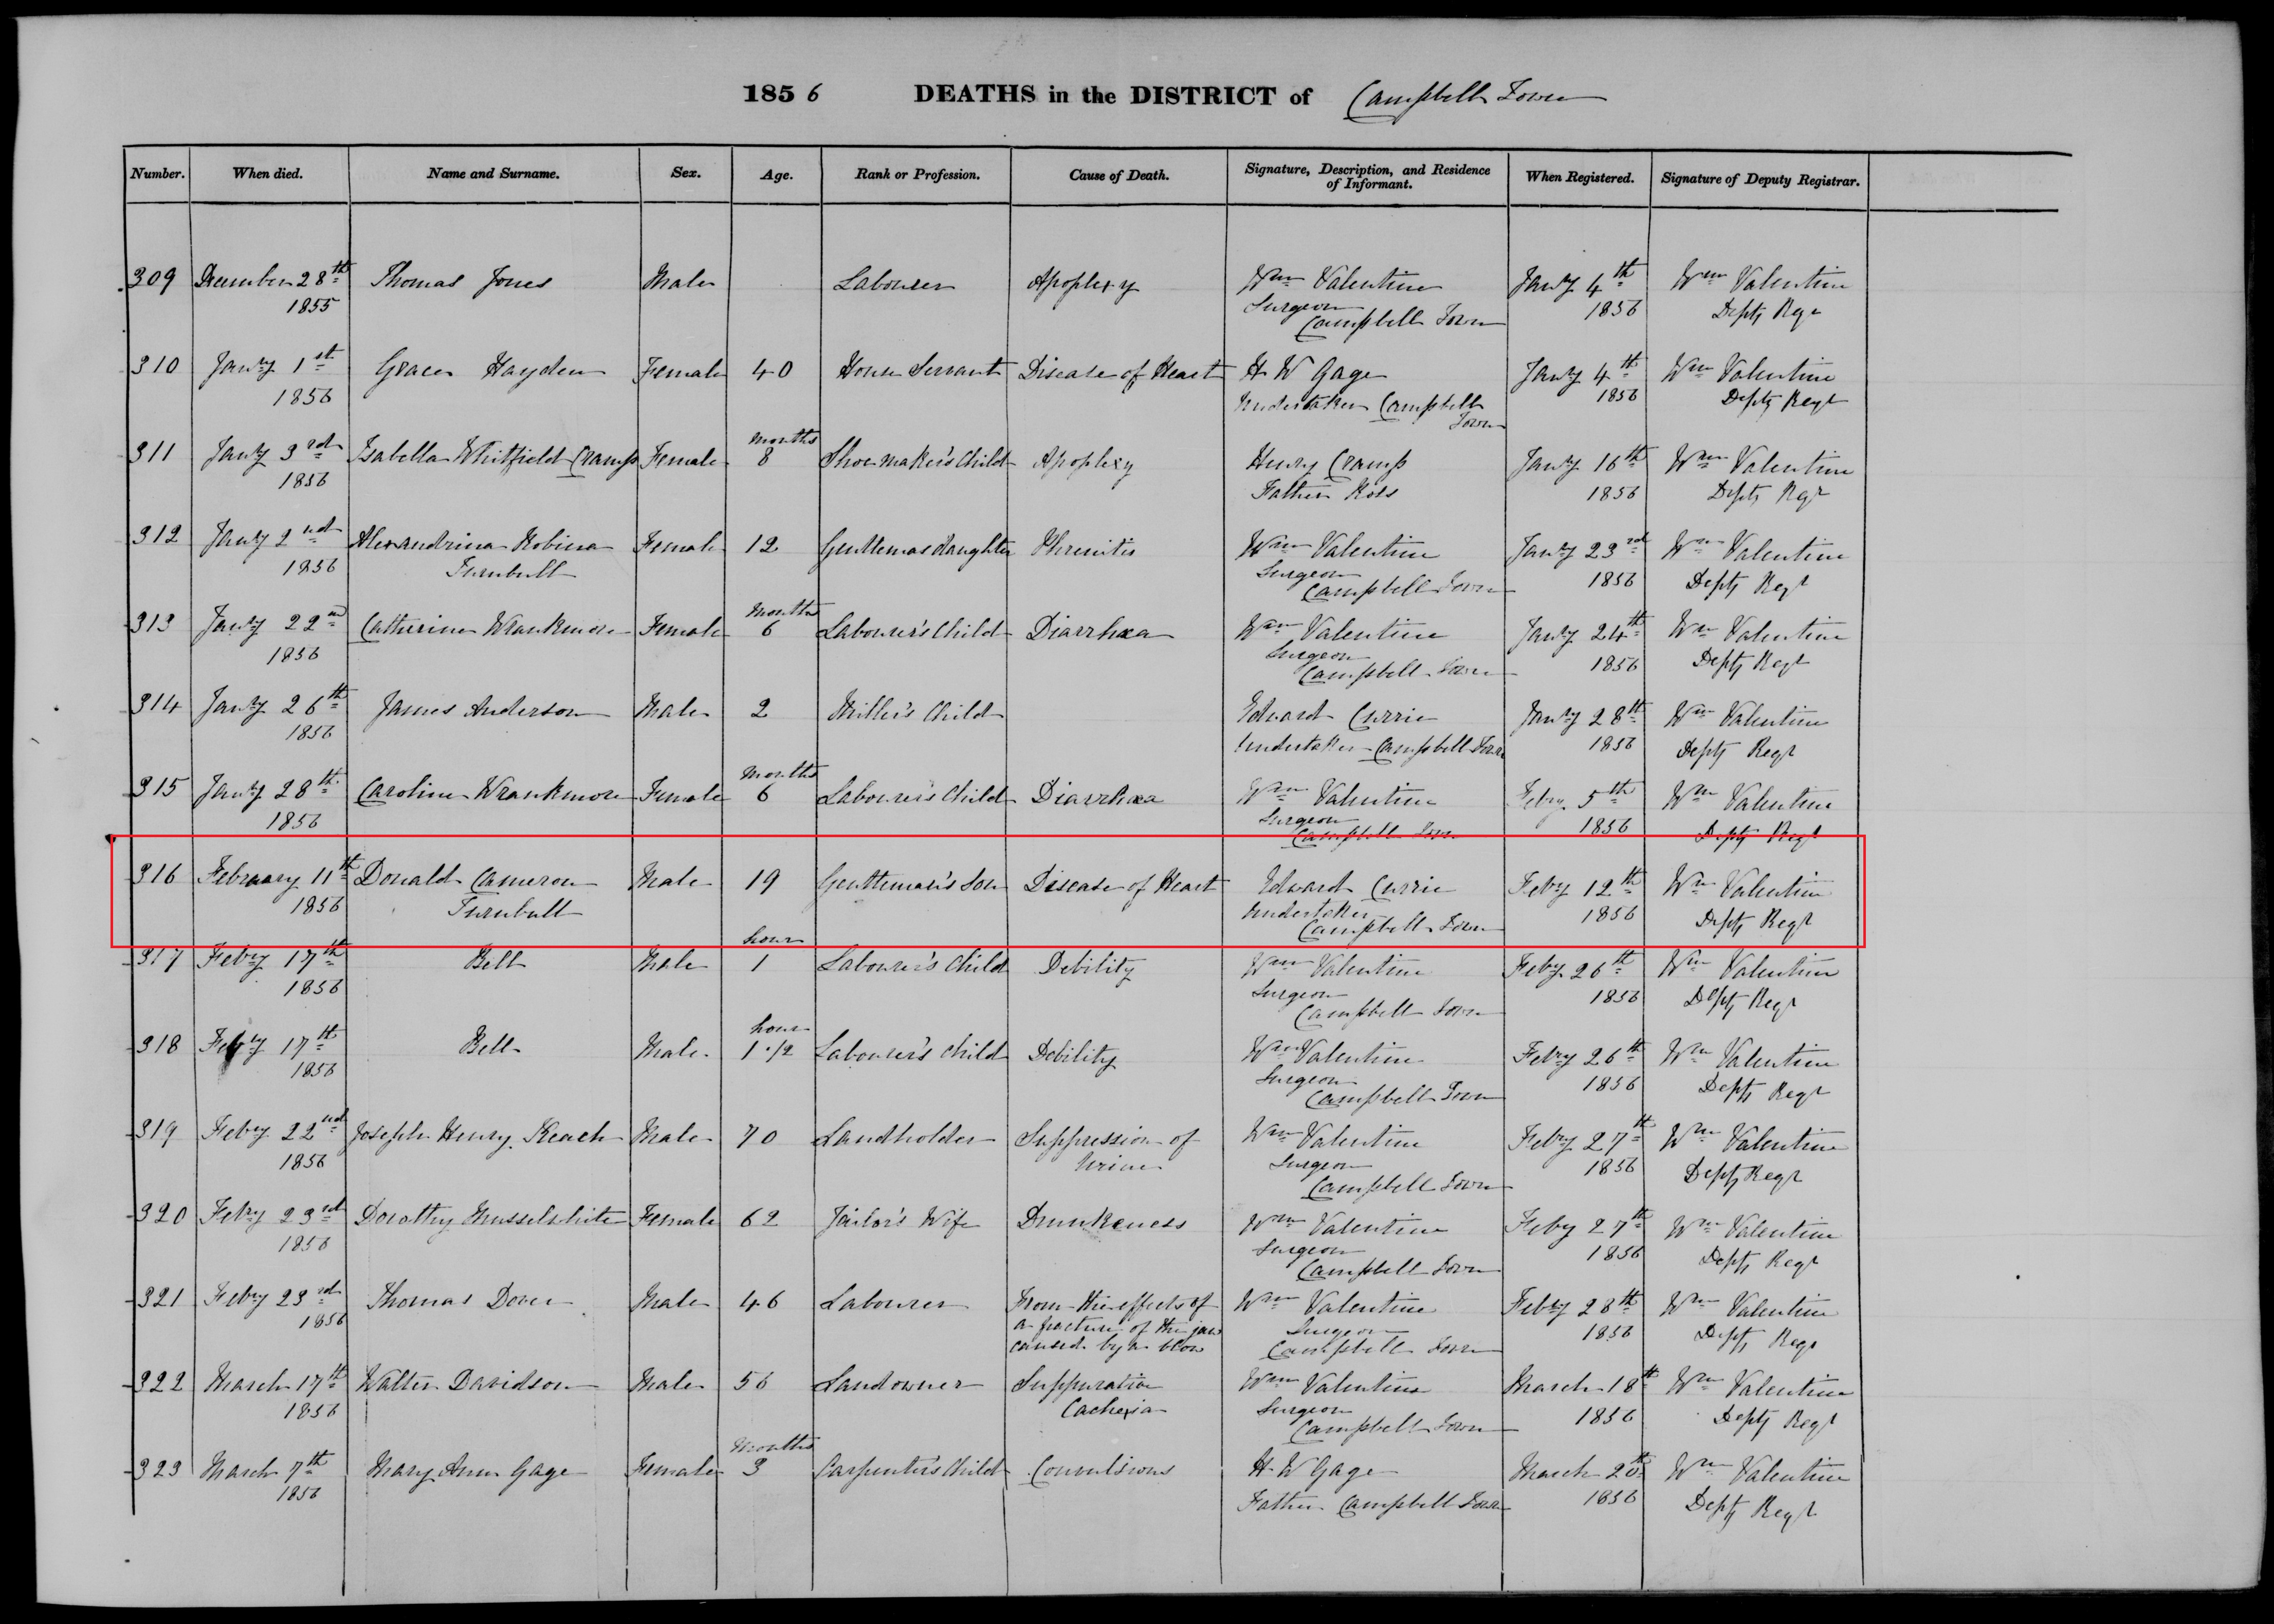 1856 DEATHS in the DISTRICT of Campbell Town
Number. When died. Name and Surname. Sex. Age. Rank or Profession. Cause of Death. Signature, Description, and Residence of Informant. When Registered. Signature of Deputy Registrar.
309 December 28th Thomas Jones Male Labourer Apoplexy Wm Valentine Jany 4th Wm Valentine
1855 Surgeon Campbell Town 1856 Depty Regr
310 Jany 1st Grace Hayden Female 40 House Servant Disease of Heart H W Gage Jany 4th Wm Valentine
1856 Undertaker Campbell Town 1856 Depty Regr
311 Jany 3rd Isabella Whitfield Cramp Female months 8 Shoemaker's Child Apoplexy Henry Cramp Jany 16th Wm Valentine
1856 Father Ross 1856 Depty Regr
312 Jany 2nd Alexandrina Robina Female 12 Gentlemas daughter Phrenitis Wm Valentine Jany 23rd Wm Valentine
1856 Turnbull Surgeon Campbell Town 1856 Depty Regr
313 Jany 22nd Catherine Wrankmore Female months 6 Labourer's Child Diarrhœa Wm Valentine Jany 24th Wm Valentine
1856 Surgeon Campbell Town 1856 Depty Regr
314 Jany 26th James Anderson Male 2 Miller's Child Edward Currie Jany 28th Wm Valentine
1856 Undertaker Campbell Town 1856 Depty Regr
315 Jany 28th Caroline Wrankmore Female months 6 Labourer's Child Diarrhœa Wm Valentine Feby 5th Wm Valentine
1856 Surgeon Campbell Town 1856 Depty Regr
316 February 11th Donald Cameron Male 19 Gentleman's Son Disease of Heart Edward Currie Feby 12th Wm Valentine
1856 Turnbull Undertaker Campbell Town 1856 Depty Regr
317 Feby 17th Bell Male hour 1 Labourer's Child Debility Wm Valentine Feby 26th Wm Valentine
1856 Surgeon Campbell Town 1856 Depty Regr
318 Feby 17th Bell Male hour 1 1/2 Labourer's Child Debility Wm Valentine Feby 26th Wm Valentine
1856 Surgeon Campbell Town 1856 Depty Regr
319 Feby 22nd Joseph Henry Keach Male 70 Landholder Suppression of Wm Valentine Feby 27th Wm Valentine
1856 Urine Surgeon Campbell Town 1856 Depty Regr
320 Feby 23rd Dorothy Musselwhite Female 62 Jailor's Wife Drunkeness Wm Valentine Feby 27th Wm Valentine
1856 Surgeon Campbell Town 1856 Depty Regr
321 Feby 23rd Thomas Dover Male 46 Labourer From the effects of Wm Valentine Feby 28th Wm Valentine
1856 a fracture of the jaw Surgeon 1856 Depty Regr
caused by a blow Campbell Town
322 March 17th Walter Davidson Male 56 Landowner Suppuration Wm Valentine March 18th Wm Valentine
1856 Cachexia Surgeon Campbell Town 1856 Depty Regr
323 March 7th Mary Ann Gage Female months 3 Carpenter's Child Convulsions H W Gage March 20th Wm Valentine
1856 Father Campbell Town 1856 Depty Regr